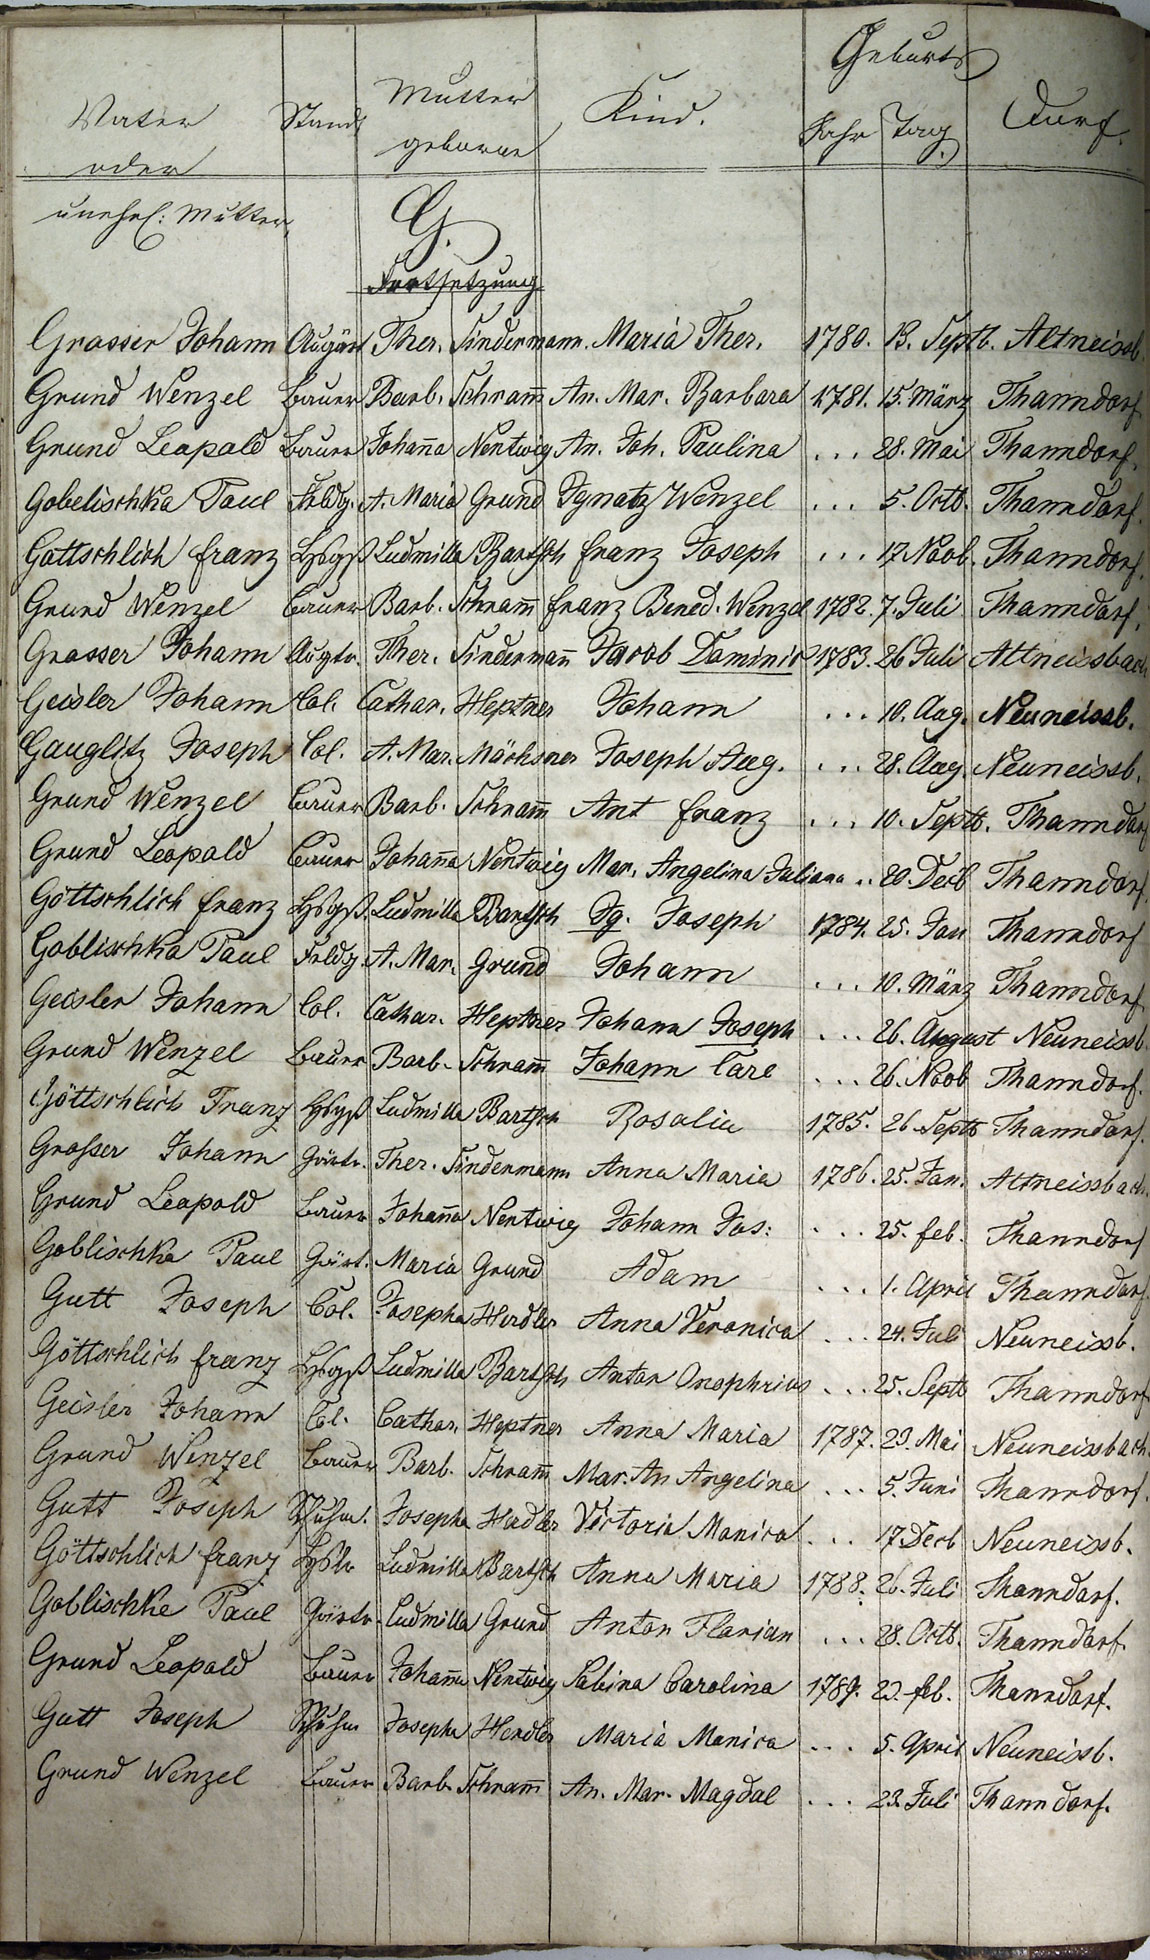 Geburts
Vater Stand Mutter Kind. Jahr Tag. Dorf.
oder geborne
unehel: Mutter,
G.
Fortsetzung
Grosser Johann Augärt Ther. Sindermann. Maria Ther. 1780. 13. Septb. Altneissb.
Grund Wenzel Bauer Barb. Schram̅ An. Mar. Barbara 1781. 15. März Thanndorf.
Grund Leopold Bauer Johan̅a Nentwig An. Joh. Paulina ... 28. Mai Thanndorf.
Gobelischka Paul Feldg. A. Maria Grund Ignatz Wenzel ... 5. Octb. Thanndorf.
Gottschlich Franz Hsgß Ludmilla Bartsch Franz Joseph ... 17. Novb. Thanndorf.
Grund Wenzel Bauer Barb. Schram̅ Franz Bened. Wenzel 1782. 7. Juli Thanndorf.
Grosser Johann Augtr. Ther. Sinderman̅ Jacob Dominic 1783. 26 Juli Altneissbach
Geisler Johann Col. Cathar. Heptner Johann ... 10. Aug. Neuneissb.
Gauglitz Joseph Col. A. Mar. Mächsner Joseph Aug. ... 28. Aug. Neuneissb.
Grund Wenzel Bauer Barb. Schram̅ Ant Franz ... 10. Septb. Thanndorf
Grund Leopold Bauer Johan̅a Nentwig Mar. Angelina Juliana .. 20. Decb Thanndorf.
Göttschlich Franz Hsgß. Ludmilla Bartsch Ig. Joseph 1784. 25. Jan Thanndorf
Goblischka Paul Feldg. A. Mar. Grund Johann ... 10. März Thanndorf.
Geisler Johann Col. Cathar. Heptner Johann Joseph ... 26. August Neuneissb.
Grund Wenzel Bauer Barb. Schram̅ Johann Carl ... 26. Novb Thanndorf.
Göttschlich Franz Hsgß Ludmilla Bartsch Rosalia 1785. 26. Septb Thanndorf.
Großer Johann Gärtr. Ther. Sindermann Anna Maria 1786. 25. Jan. Altneissbach.
Grund Leopold Bauer Johan̅a Nentwig Johann Jos: ... 25. Feb. Thanndorf
Goblischka Paul Gärt. Maria Grund Adam ... 1. April Thanndorf.
Gutt Joseph Col. Josepha Herdler Anna Veronica ... 24. Juli Neuneissb.
Göttschlich Franz Hsgß Ludmilla Bartsch Anton Onophrius ... 25. Septb Thanndorf.
Geisler Johann Col. Cathar. Heptner Anna Maria 1787. 23. Mai Neuneissbach.
Grund Wenzel Bauer Barb. Schram̅ Mar. An Angelina ... 5. Juni Thanndorf.
Gutt Joseph Schuhm. Josepha Herdler Victoria Monica ... 17. Decb Neuneissb.
Göttschlich Franz Hslr Ludmilla Bartsch Anna Maria 1788. 26. Juli Thanndorf.
Goblischke Paul Gärtr. Ludmilla Grund Anton Florian ... 28. Octb. Thanndorf.
Grund Leopold Bauer Johan̅a Nentwig Sabina Carolina 1789. 23. Feb. Thanndorf.
Gutt Joseph Schuhm Josepha Herdler Maria Monica ... 5. April Neuneissb.
Grund Wenzel Bauer Barb. Schram̅ An. Mar. Magdal ... 23. Juli Thanndorf.